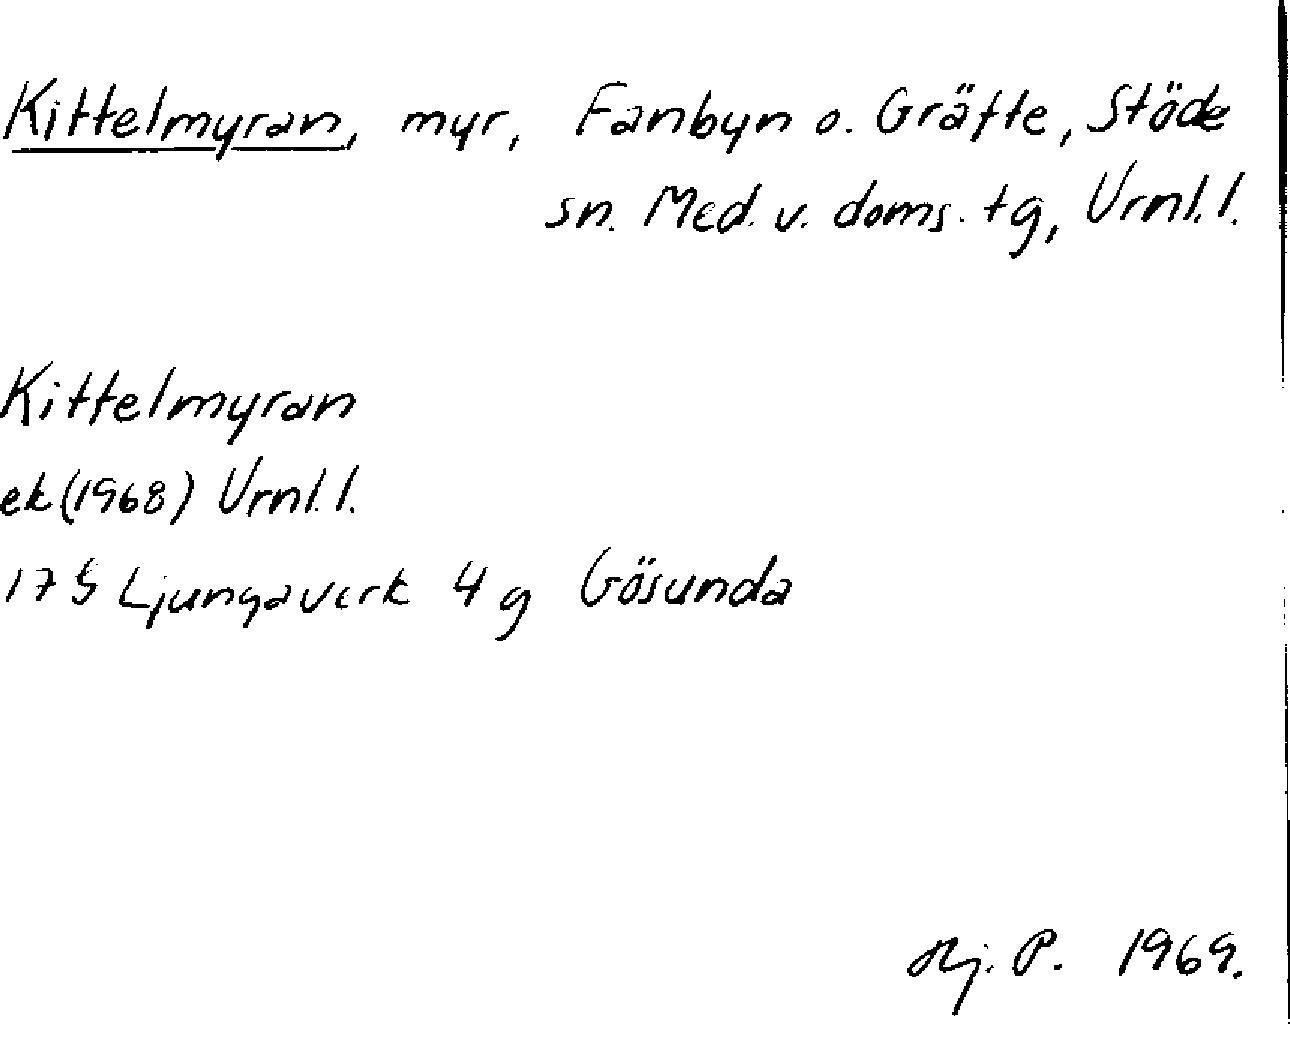 Kittelmyran, myr, Fanbyn o. Gräfte, Stöde
sn. Med. v. doms. tg, Vrnl. l.
Kittelmyran
ek (1968) Vrnl. l.
17 § Ljungaverk 4 g Gösunda
Hj. P. 1969.